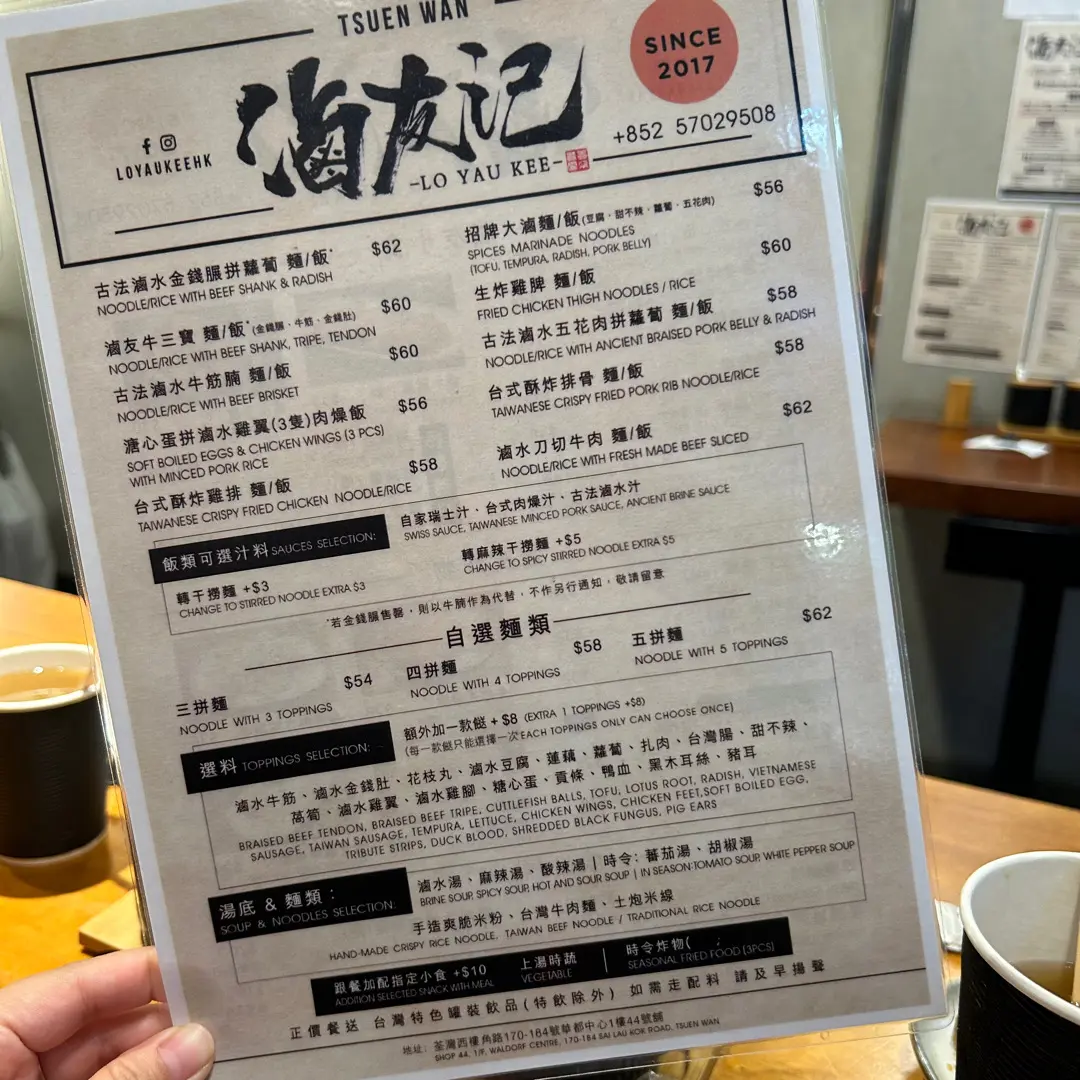 TSUEN WAN
滷友記
SINCE
2017
LOYAUKEEHK
-LO YAU KEE-
+852 57029508
古法滷水金錢𦟌拼蘿蔔 麵/飯* $62
NOODLE/RICE WITH BEEF SHANK & RADISH
滷友牛三寶 麵/飯*(金錢𦟌、牛筋、金錢肚) $60
NOODLE/RICE WITH BEEF SHANK, TRIPE, TENDON
古法滷水牛筋腩 麵/飯 $60
NOODLE/RICE WITH BEEF BRISKET
溏心蛋拼滷水雞翼(3隻)肉燥飯 $56
SOFT BOILED EGGS & CHICKEN WINGS (3 PCS)
WITH MINCED PORK RICE
台式酥炸雞排 麵/飯 $58
TAIWANESE CRISPY FRIED CHICKEN NOODLE/RICE
招牌大滷麵/飯(豆腐、甜不辣、蘿蔔、五花肉) $56
SPICES MARINADE NOODLES
(TOFU, TEMPURA, RADISH, PORK BELLY)
生炸雞脾 麵/飯 $60
FRIED CHICKEN THIGH NOODLES / RICE
古法滷水五花肉拼蘿蔔 麵/飯 $58
NOODLE/RICE WITH ANCIENT BRAISED PORK BELLY & RADISH
台式酥炸排骨 麵/飯 $58
TAIWANESE CRISPY FRIED PORK RIB NOODLE/RICE
滷水刀切牛肉 麵/飯 $62
NOODLE/RICE WITH FRESH MADE BEEF SLICED
飯類可選汁料 SAUCES SELECTION:
自家瑞士汁、台式肉燥汁、古法滷水汁
SWISS SAUCE, TAIWANESE MINCED PORK SAUCE, ANCIENT BRINE SAUCE
轉干撈麵 +$3
CHANGE TO STIRRED NOODLE EXTRA $3
轉麻辣干撈麵 +$5
CHANGE TO SPICY STIRRED NOODLE EXTRA $5
*若金錢𦟌售罄，則以牛腩作為代替，不作另行通知，敬請留意
自選麵類
三拼麵 $54
NOODLE WITH 3 TOPPINGS
四拼麵 $58
NOODLE WITH 4 TOPPINGS
五拼麵 $62
NOODLE WITH 5 TOPPINGS
選料 TOPPINGS SELECTION:
額外加一款餸 + $8 (EXTRA 1 TOPPINGS +$8)
(每一款餸只能選擇一次 EACH TOPPINGS ONLY CAN CHOOSE ONCE)
滷水牛筋、滷水金錢肚、花枝丸、滷水豆腐、蓮藕、蘿蔔、扎肉、台灣腸、甜不辣、
萵筍、滷水雞翼、滷水雞腳、糖心蛋、貢條、鴨血、黑木耳絲、豬耳
BRAISED BEEF TENDON, BRAISED BEEF TRIPE, CUTTLEFISH BALLS, TOFU, LOTUS ROOT, RADISH, VIETNAMESE
SAUSAGE, TAIWAN SAUSAGE, TEMPURA, LETTUCE, CHICKEN WINGS, CHICKEN FEET,SOFT BOILED EGG,
TRIBUTE STRIPS, DUCK BLOOD, SHREDDED BLACK FUNGUS, PIG EARS
湯底 & 麵類：
SOUP & NOODLES SELECTION:
滷水湯、麻辣湯、酸辣湯 | 時令: 蕃茄湯、胡椒湯
BRINE SOUP, SPICY SOUP, HOT AND SOUR SOUP | IN SEASON:TOMATO SOUP, WHITE PEPPER SOUP
手造爽脆米粉、台灣牛肉麵、土炮米線
HAND-MADE CRISPY RICE NOODLE, TAIWAN BEEF NOODLE / TRADITIONAL RICE NOODLE
跟餐加配指定小食 +$10
ADDITION SELECTED SNACK WITH MEAL
上湯時蔬
VEGETABLE
時令炸物(
SEASONAL FRIED FOOD (3PCS)
正價餐送 台灣特色罐裝飲品(特飲除外) 如需走配料 請及早揚聲
地址: 荃灣西樓角路170-184號華都中心1樓44號舖
SHOP 44, 1/F, WALDORF CENTRE, 170-184 SAI LAU KOK ROAD, TSUEN WAN